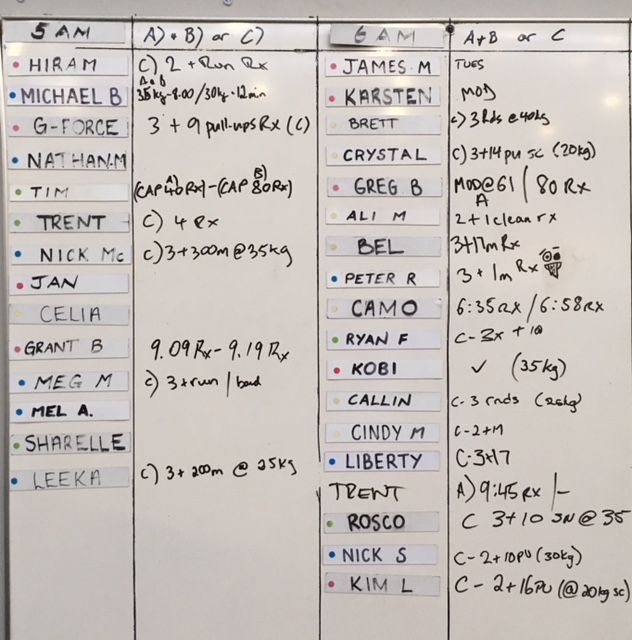 5 AM A) + B) or C)
HIRAM C) 2 + Run Rx
MICHAEL B A+B 35kg-8:00/30kg-12min
G-FORCE 3 + 9 pull-ups Rx (C)
NATHAN.M
TIM (CAP A) 40 RX) - (CAP B) 80 RX)
TRENT C) 4 RX
NICK Mc C) 3+300m @ 35kg
JAN
CELIA
GRANT B 9.09 Rx - 9.19 Rx
MEG M C) 3+run / band
MEL A.
SHARELLE
LEEKA C) 3+200m @ 25kg
6 AM A+B or C
JAMES M TUES
KARSTEN MOD
BRETT C) 3 Rds @ 40kg
CRYSTAL C) 3+14 PU SC (20kg)
GREG B MOD @ 61 / 80 Rx
A
ALI M 2 + 1 clean rx
BEL 3+17m Rx
PETER R 3 + 1m Rx
CAMO 6:35 RX / 6:58 RX
RYAN F C- 3x + 10
KOBI ✓ (35kg)
CALLIN C- 3 rnds (25kg)
CINDY M C-2+M
LIBERTY C-3+17
TRENT A) 9:45 RX /-
ROSCO C 3+10 @ 35
NICK S C-2+10PU (30kg)
KIM L C- 2+16PU (@ 20kg SC)